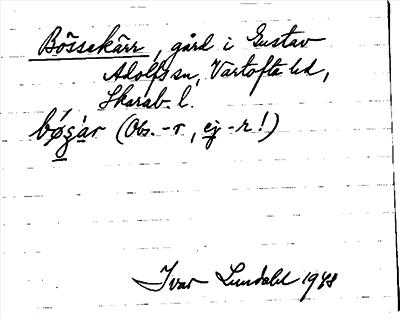 Bössekärr, gård i Gustav
Adolfs sn, Vartofta hd,
Skarab. l.
bǿgàr (Obs. -r, ej -ʀ!)
Ivar Lundahl 1948